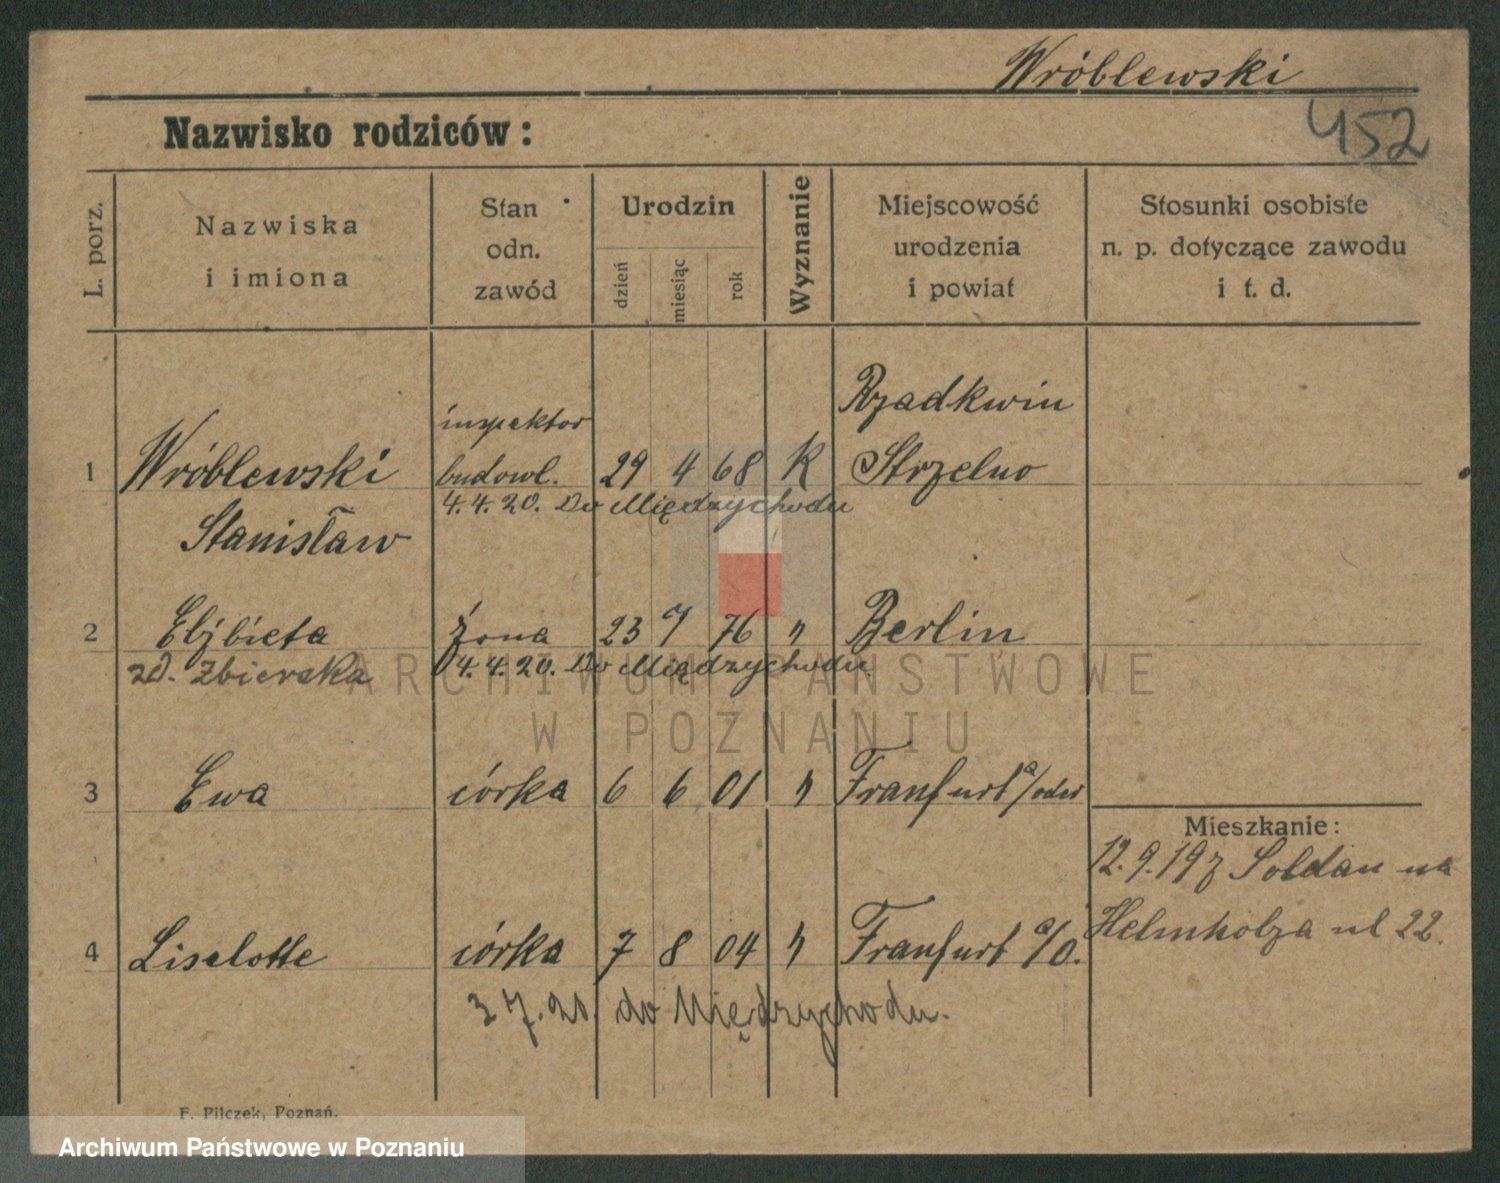 Wróblewski
452
Nazwisko rodziców:
L. porz.
Nazwiska
i imiona
Stan
odn.
zawód
Urodzin
dzień
miesiąc
rok
Wyznanie
Miejscowość
urodzenia
i powiat
Stosunki osobiste
n. p. dotyczące zawodu
i t. d.
Rzadkwin
inspektor
1 Wróblewski budowl. 29 4 68 K Strzelno
4. 4. 20. Do Międzychodu
Stanisław
2 Elżbieta żona 23 7 76 " Berlin
zd. Zbierska 4. 4. 20. Do Międzychodu
ARCHIWUM PAŃSTWOWE
W POZNANIU
3 Ewa córka 6 6 01 " Franfurt a/oder
Mieszkanie:
12. 9. 19 z Soldau na
Helmholza ul 22.
4 Liselotte córka 7 8 04 " Franfurt a/O.
3 7. 20. do Międzychodu.
F. Pilczek, Poznań.
Archiwum Państwowe w Poznaniu